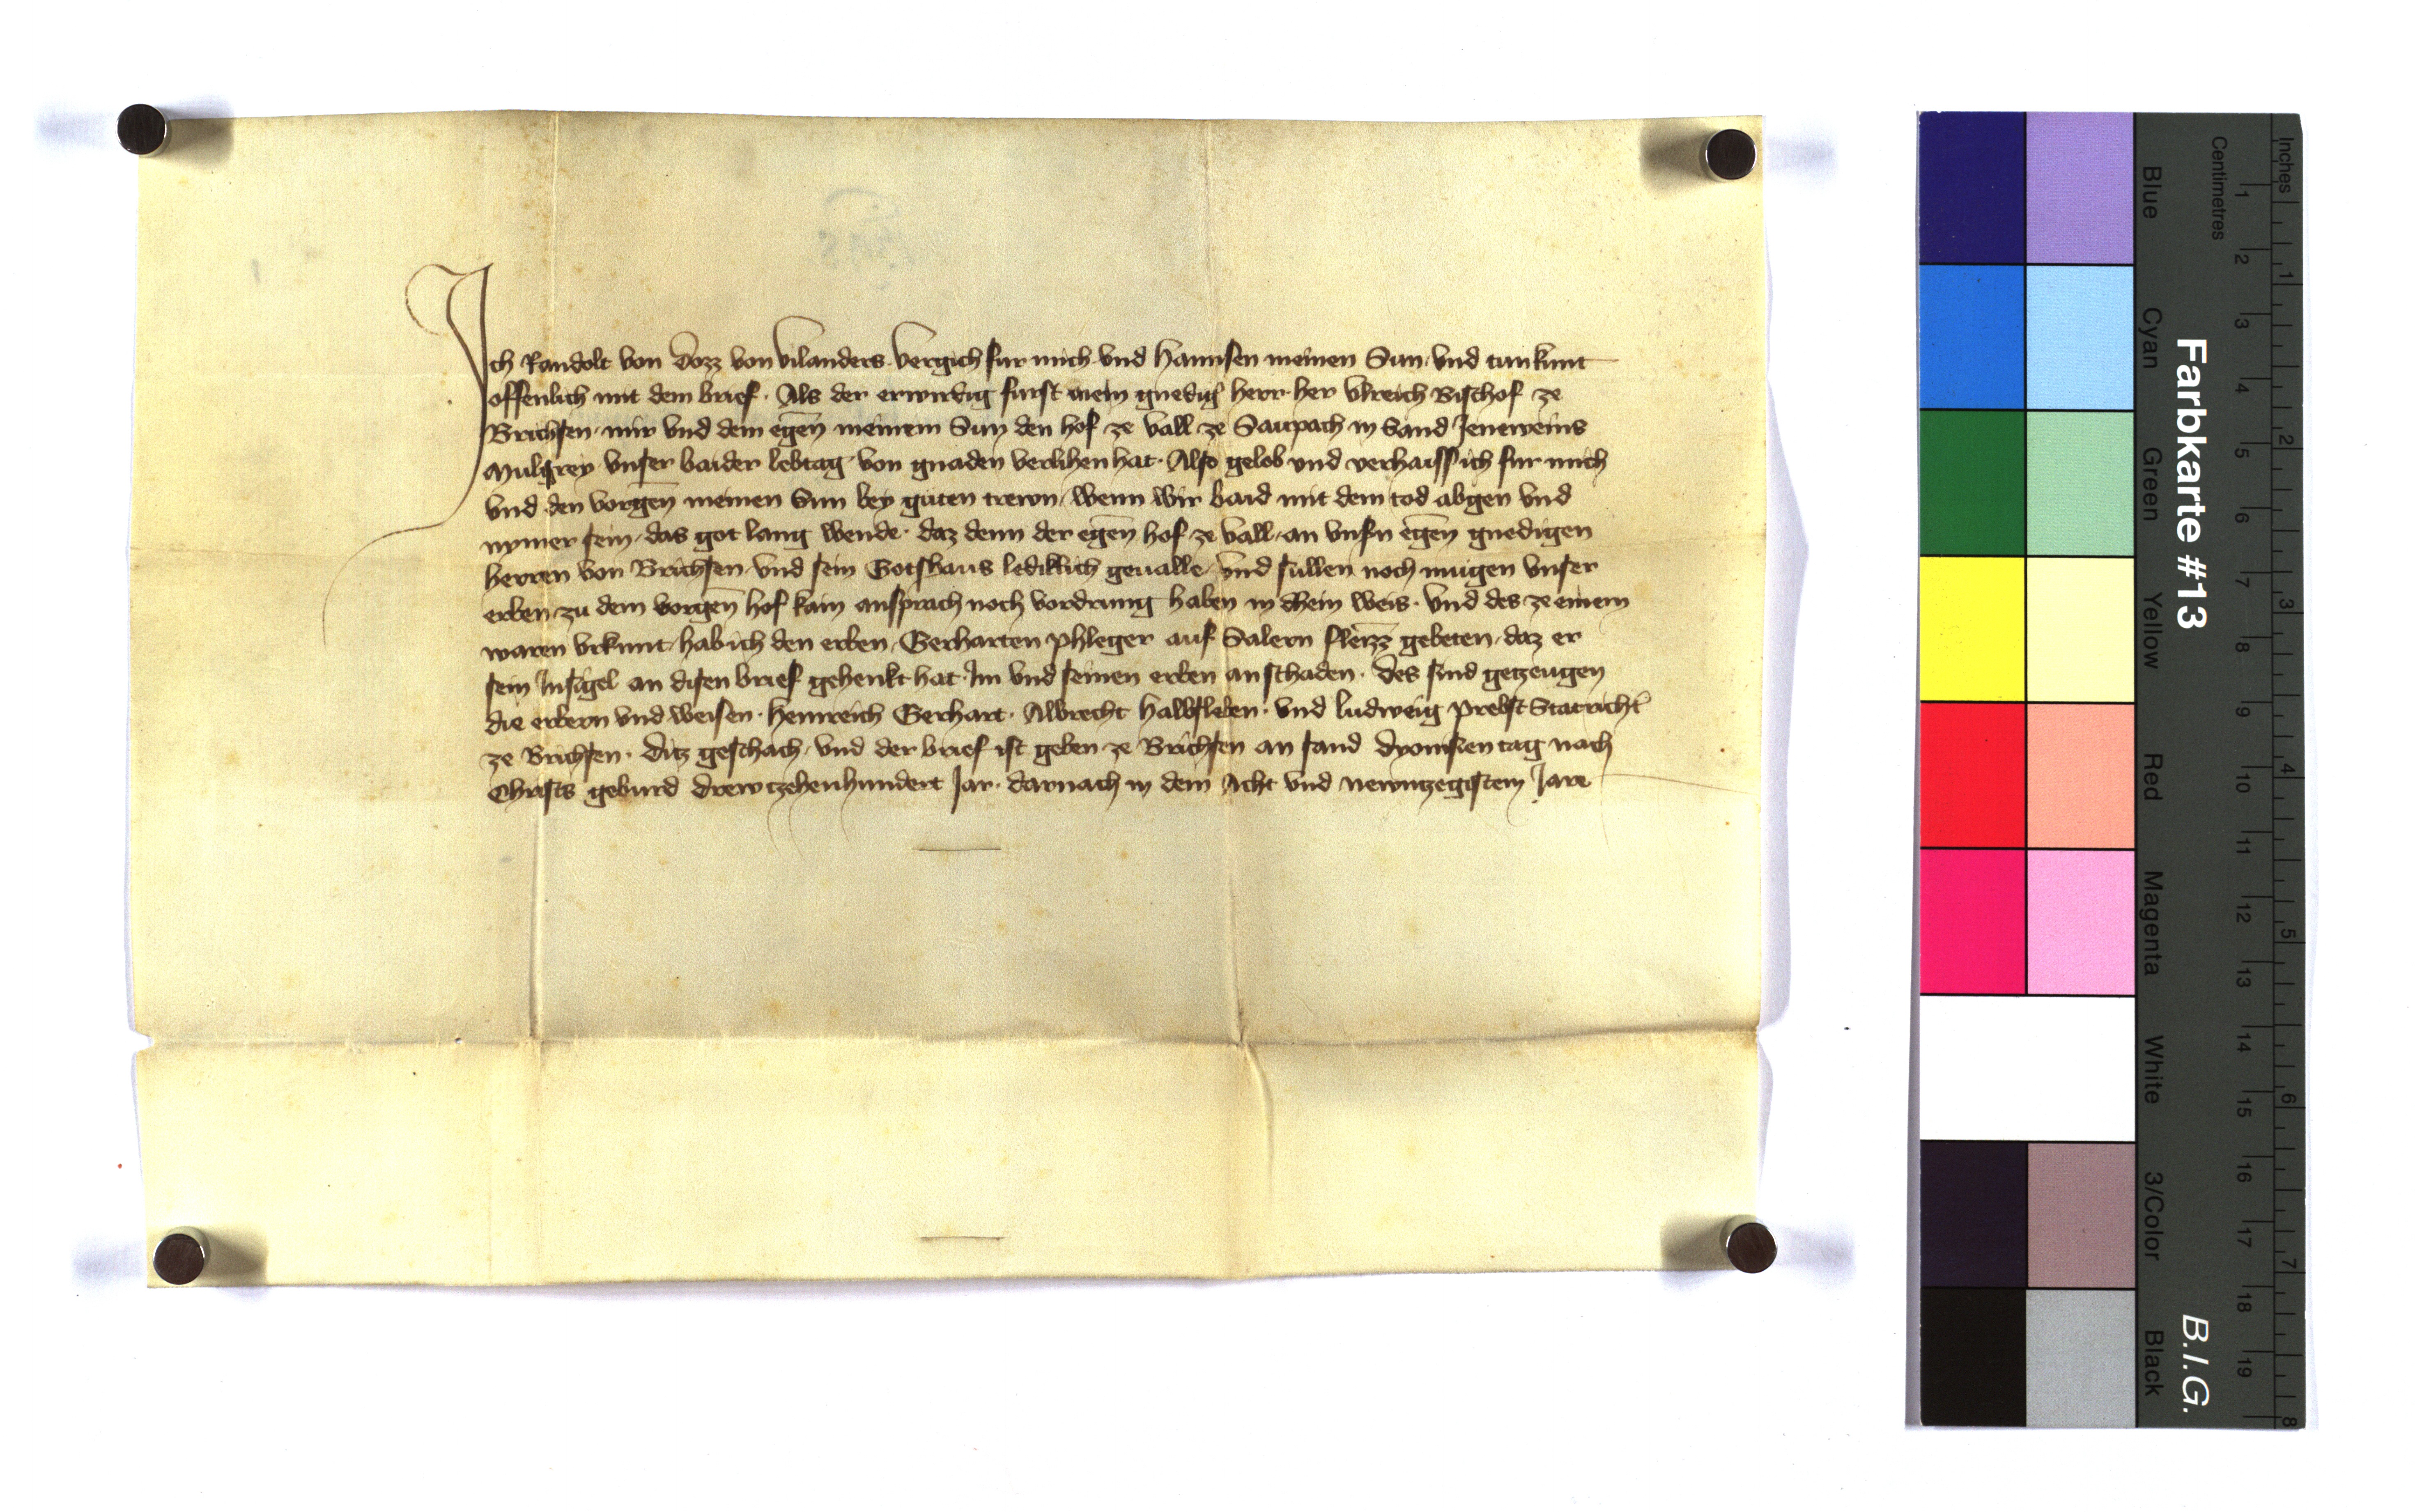 Ich Randolt von Dozz von Vilanders. vergich fur mich vnd Hannsen meinen Sun, vnd tun kunt
offenlich mit dem brief. Als der erwirdig furst mein gnedig herr her Vlreich Bischof ze
Brichsen, mir vnd dem egen̄ meinem Sun den hof ze Vall ze Saupach in Sand Jeneweins
Mulgrey vnser baider lebtag von gnaden verlihen hat. Also gelob vnd verhaiss ich fur mich
vnd den vorgen̄ meinen Sun bey guten trewn, wenn wir baid mit dem tod abgen vnd
nymer sein, das got lang wende. daz denn der egen̄ hof ze Vall, an vnsn egen̄ gnedigen
herren von Brichsen, vnd sein Gotshaus lediklich geualle, vnd sullen noch mugen vnser
erben zu dem vorgen̄ hof kain ansprach noch vordrung haben in dhein weis. Vnd des ze einem
waren vrkunt, hab ich den erben, Gerharten phleger auf Salern fleizz gebeten, daz er
sein Insigel an disen brief gehenkt hat. Im vnd seinen erben an schaden. Des sind getzeugen
die erbern vnd weisen. Heinreich Gerhart. Albrecht Halbsleben. vnd Ludweig Prebst Statricht
ze Brichsen. Ditz geschach, vnd der brief ist geben ze Brichsen an sand Dyonisen tag nach
Christs geburd drewtzehenhundert Jar. darnach in dem Acht vnd newntzegistem Jare
Farbkarte #13
B.I.G.
Blue Cyan Green Yellow Red Magenta White 3/Color Black
Centimetres
1 2 3 4 5 6 7 8 9 10 11 12 13 14 15 16 17 18 19
Inches
1 2 3 4 5 6 7 8